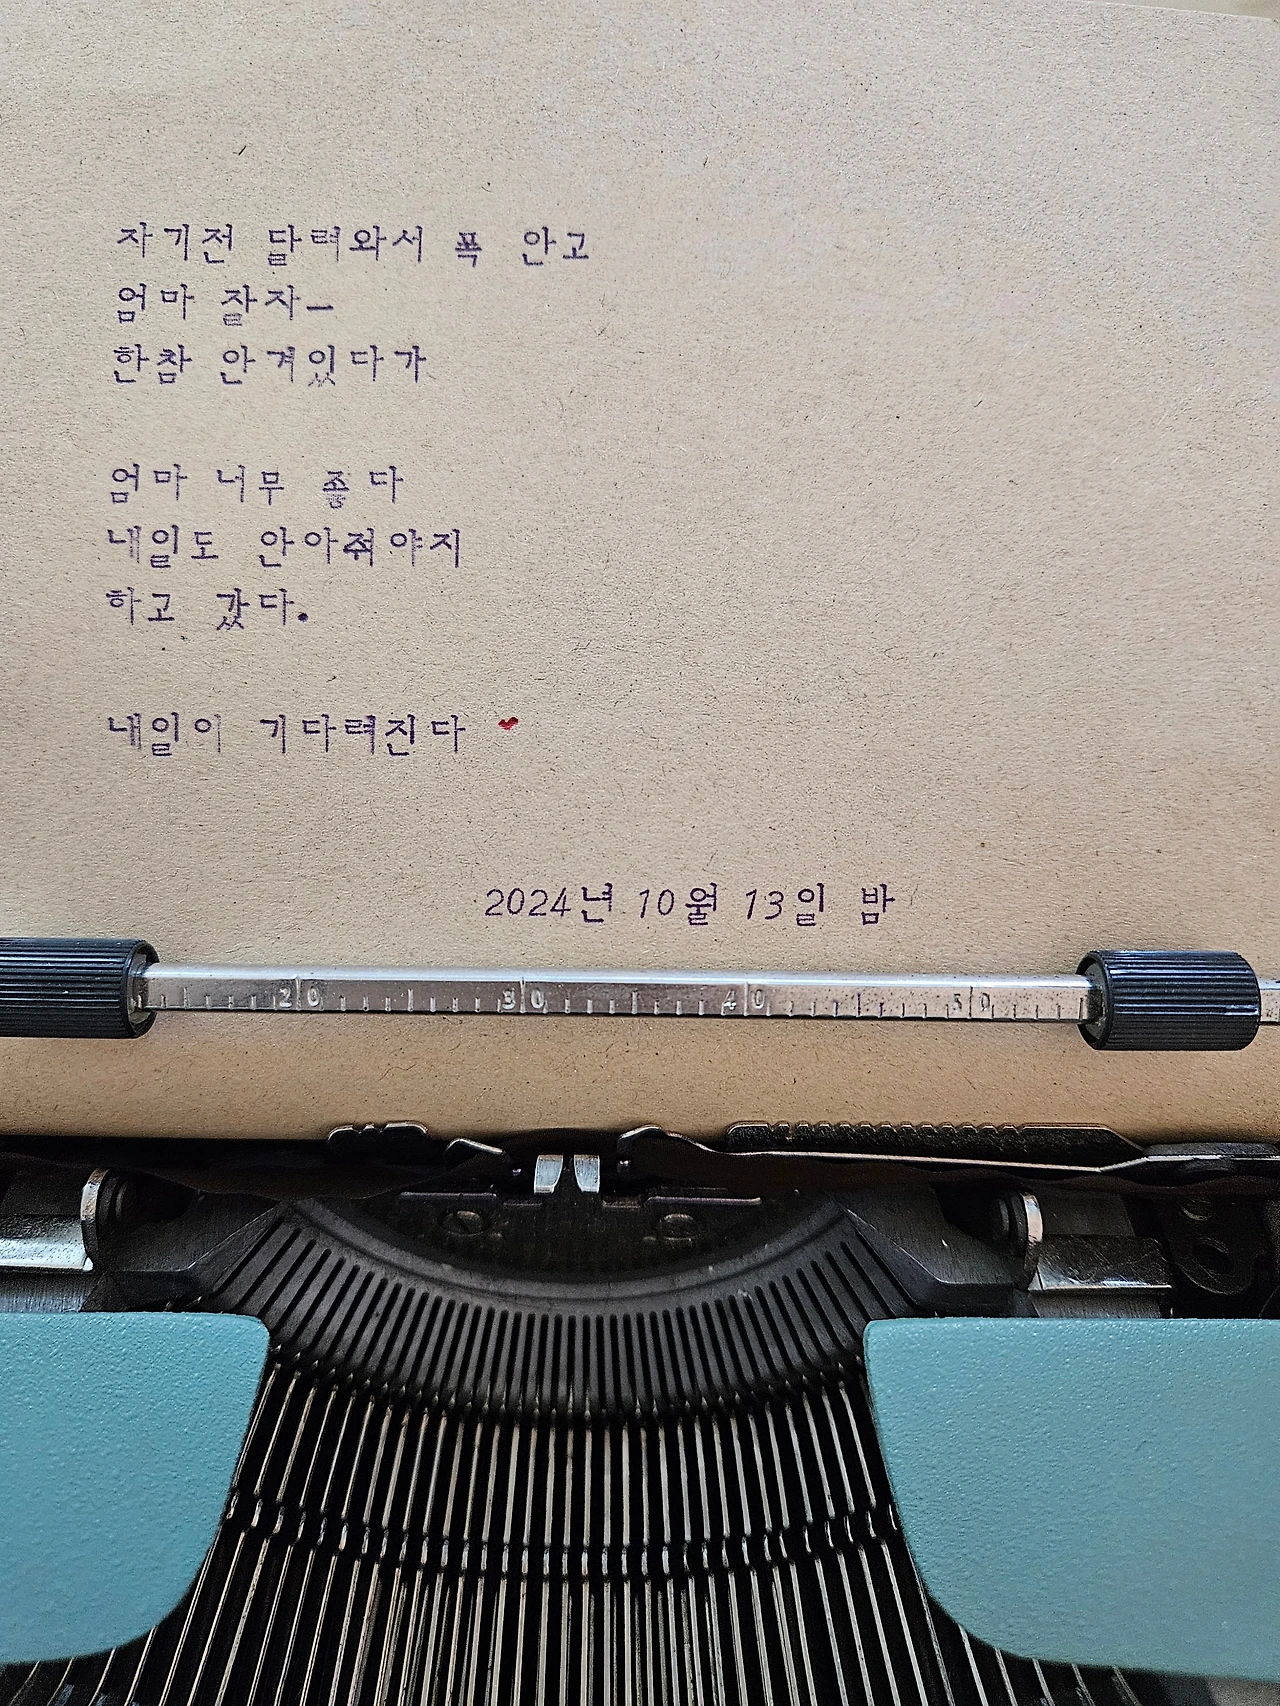 자기전 달려와서 폭 안고
엄마 잘자-
한참 안겨있다가
엄마 너무 좋다
내일도 안아줘야지
하고 갔다.
내일이 기다려진다 ❤
2024년 10월 13일 밤
20 30 40 50